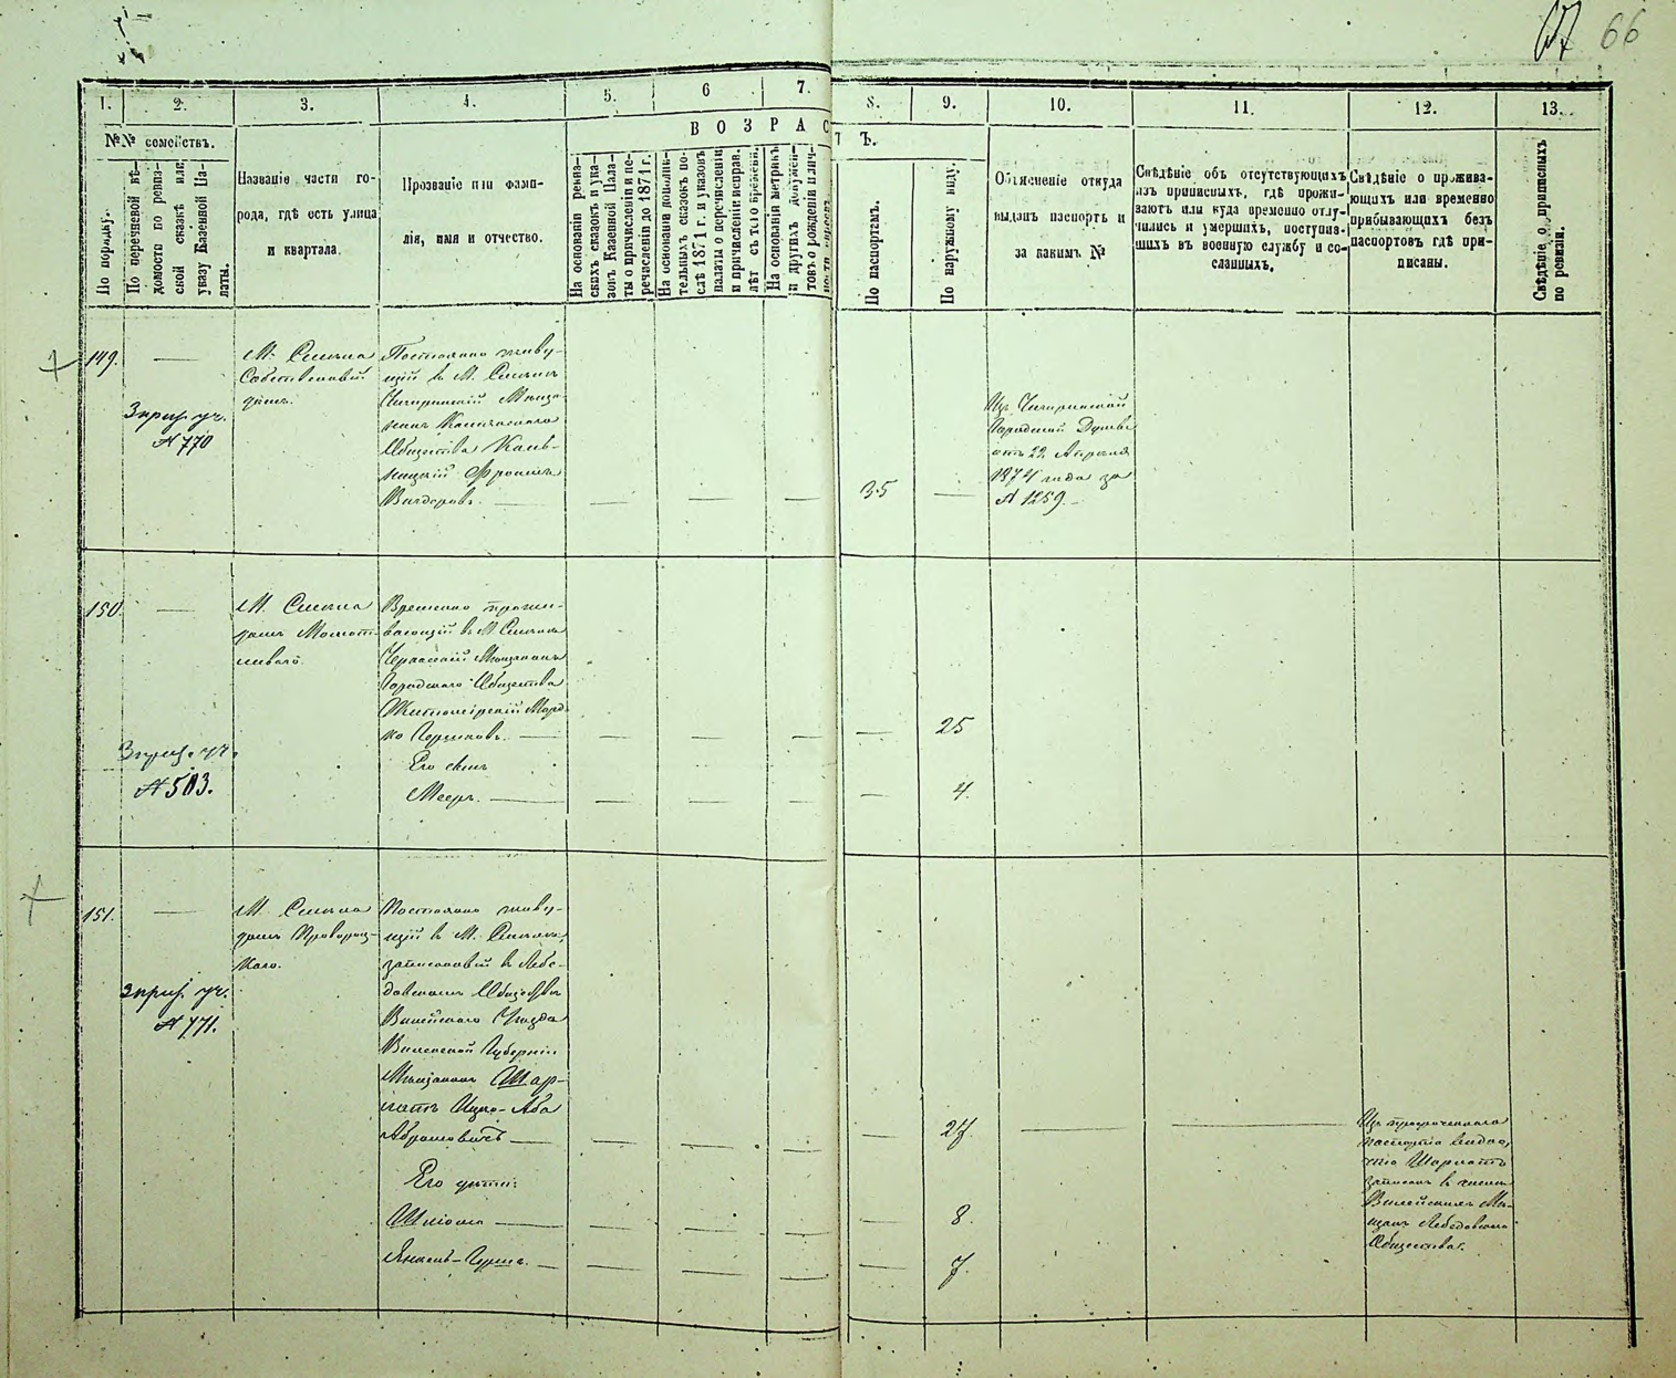 66
1. 2. 3. 4. 5. 6 7. 8. 9. 10. 11. 12. 13.
№№ семействъ.
По порядку.
По перечневой вѣ-
домости по ревиз-
ской сказкѣ или
указу Казенной Па-
латы.
Названіе части го-
рода, гдѣ есть улица
и квартала.
Прозваніе или фами-
лія, имя и отчество.
ВОЗРАСТЪ.
На основаніи ревиз-
скихъ сказокъ и ука-
зовъ Казенной Пала-
ты о причисленіи и пе-
речисленіи до 1871 г.
На основаніи дополни-
тельныхъ сказокъ по-
слѣ 1871 г. и указовъ
палаты о перечисленіи
и причисленіи исправ.
лѣт съ того времени.
На основаніи метрикъ
и другихъ докумен-
товъ о рожденіи
По паспортамъ.
По наружному виду.
Объясненіе откуда
выданъ паспортъ и
за какимъ №
Свѣдѣніе объ отсутствующихъ
изъ приписныхъ, гдѣ прожи-
ваютъ или куда временно отлу-
чились и умершихъ, поступив-
шихъ въ военную службу и со-
сланныхъ.
Свѣдѣніе о прожива-
ющихъ или временно
прибывающихъ безъ
паспортовъ гдѣ при-
писаны.
Свѣдѣніе о приписныхъ
по ревизіи.
149.
№ 770
М. Смѣла
Собственный
домъ.
Постоянно живу-
щій в М. Смѣлѣ
Чигиринскій Мѣща-
нинъ
Общества
35
Изъ Чигиринской
Городской Думы
отъ 22 Апрѣля
1874 года за
№ 1259.
150.
№ 503.
М. Смѣла
домъ
Временно прожи-
вающій в М. Смѣлѣ
Черкасскій Мѣщанинъ
Городского Общества
Житомірскій Морд-
ко
25
Его сынъ
Мееръ.
4
151.
№ 771.
М. Смѣла
домъ
Постоянно живу-
щій в М. Смѣлѣ,
записанный в Лебе-
довскомъ Общество
Вилейского Уѣзда
Виленской Губерніи
Мѣщанинъ Шар-
латъ Ицко-Аба
Абрамовичъ
27
Его дѣти:
Шліома
8.
Янкель-Гурша.
7.
Изъ просроченного
паспорта видно,
что Шарлатъ
записан в числѣ
Вилейскихъ Мѣ-
щанъ Лебедовского
Общества.